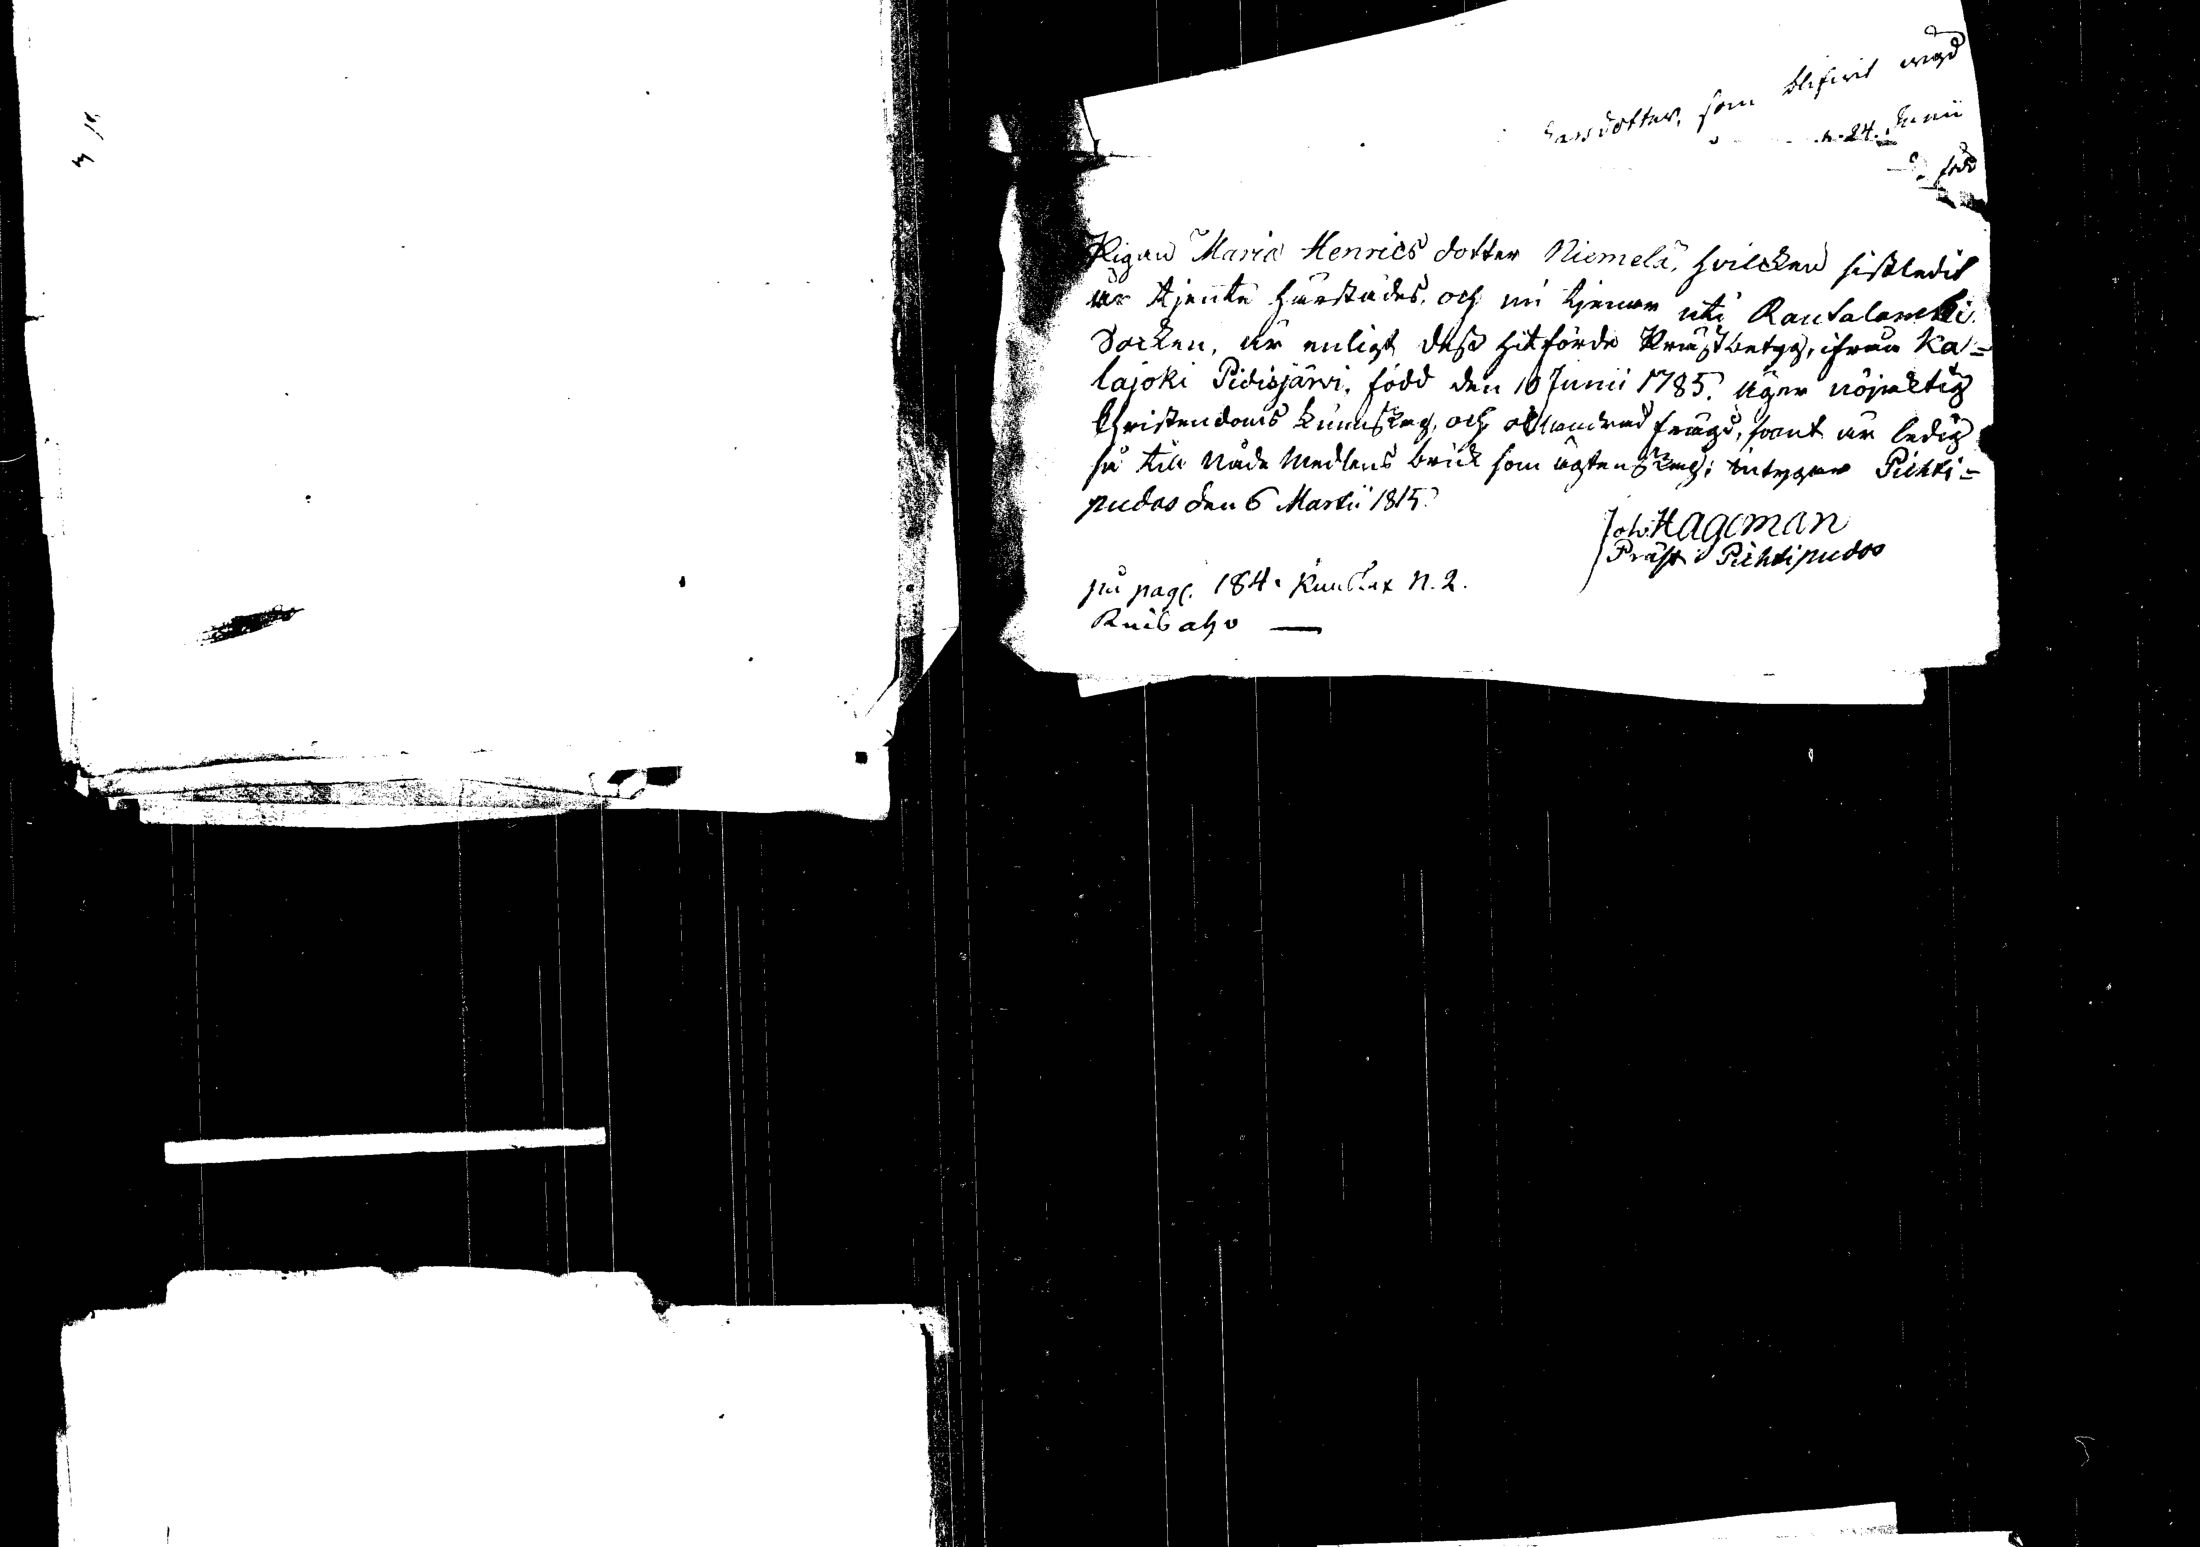 dotter, som blifvit
24. Junii
född
Pigan Maria Henrics dotter Niemelä, hvilcken sistledit
år tjent härstädes, och nu tjenar uti Rautalambi
Socken, är enligt dess hitförde Prästbetyg, ifrån Ka=
lajoki Pidisjärvi, född den 10 Junii 1785. äger nöjaktig
Christendoms kunskap, och oklandrad frägd, samt är ledig
så till Nåde Medlens bruk som ägtenskap; intygar Pihti=
pudas den 6 Martii 1815.
Joh. Hageman
Präst i Pihtipudas
på pag. 184. N. 2.
Ruis aho —